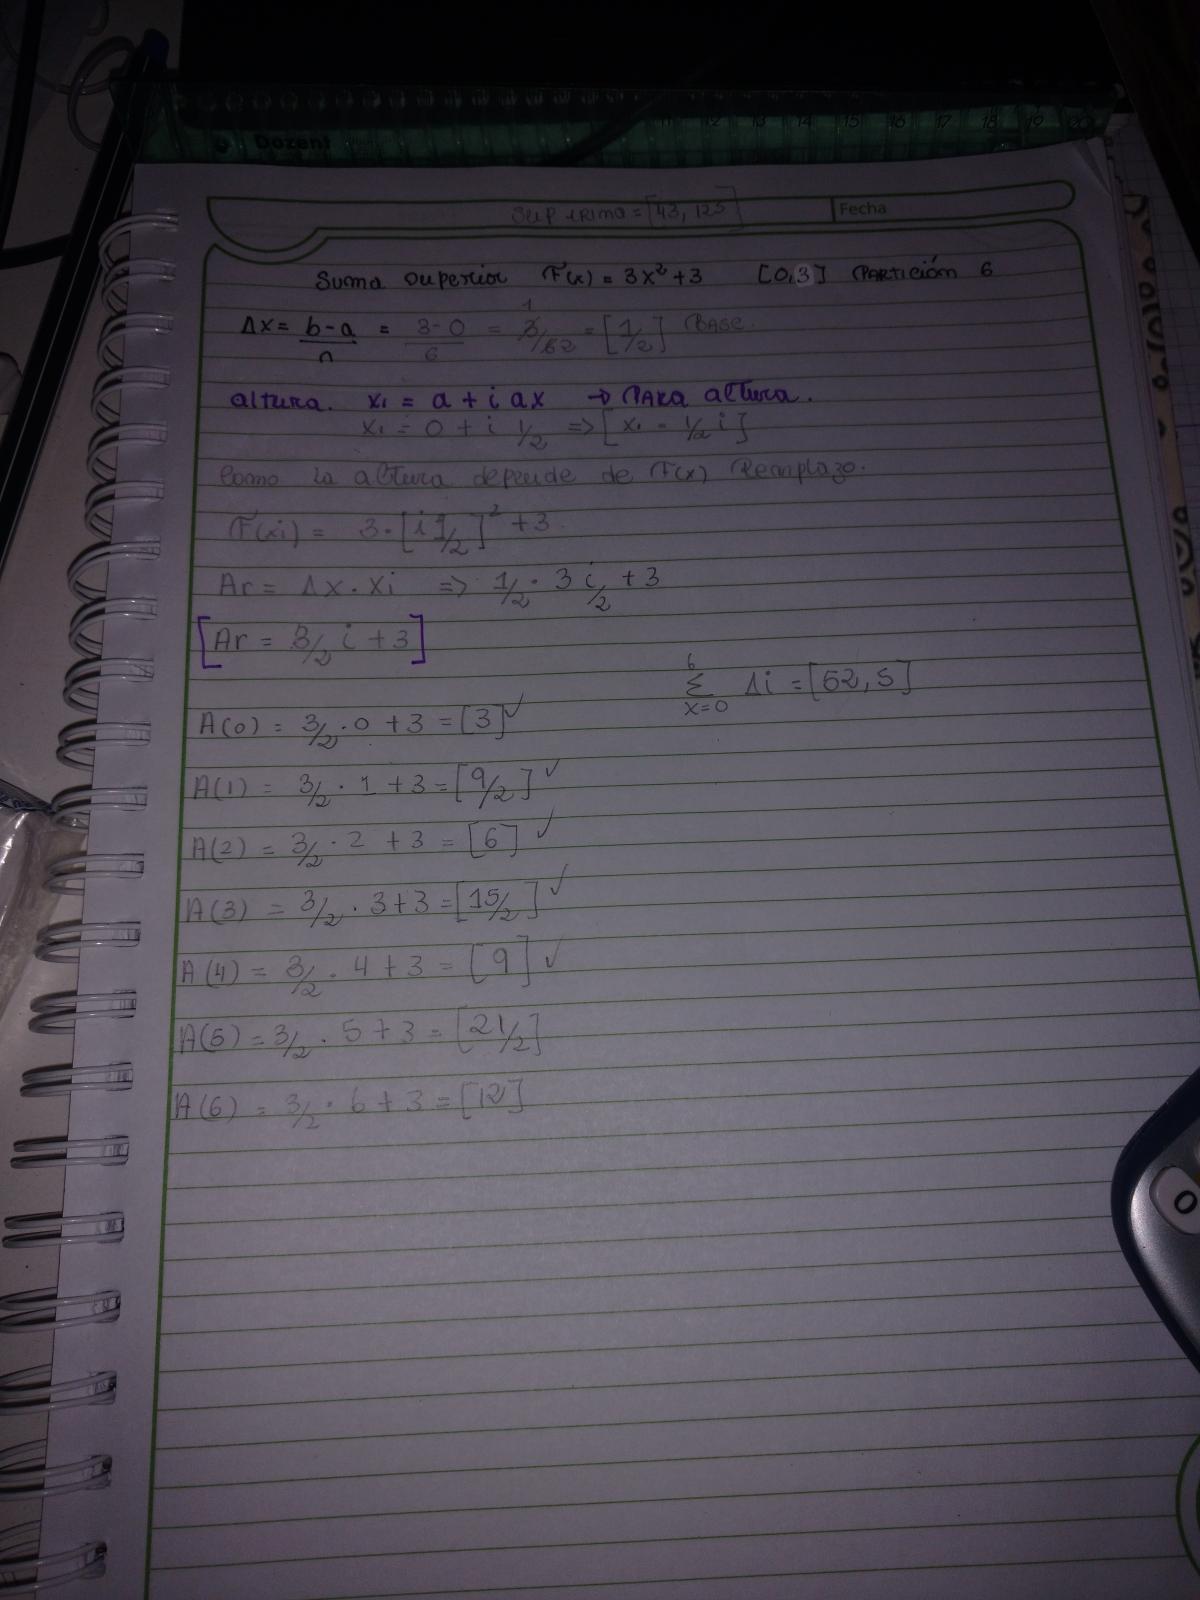 Dozent
11 12 13 14 15 16 17 18 19 20
Sup erima = [43, 125]
Fecha
Suma Superior F(x) = 3x² + 3 [0,3] Partición 6
Δx = b-a/n = 3-0/6 = 3/62 1 = [1/2] Base.
altura. xi = a + i ax → Para altura.
xi = 0 + i 1/2 => [xi = 1/2 i]
Como la altura depende de F(x) Remplazo.
F(xi) = 3·[i 1/2]² + 3
Ar = Δx · xi => 1/2 · 3 i/2 + 3
[Ar = 3/2 i + 3]
6
Σ Δi = [52,5]
x=0
A(0) = 3/2 · 0 + 3 = [3] ✓
A(1) = 3/2 · 1 + 3 = [9/2] ✓
A(2) = 3/2 · 2 + 3 = [6] ✓
A(3) = 3/2 · 3 + 3 = [15/2] ✓
A(4) = 3/2 · 4 + 3 = [9] ✓
A(5) = 3/2 · 5 + 3 = [21/2]
A(6) = 3/2 · 6 + 3 = [12]
0